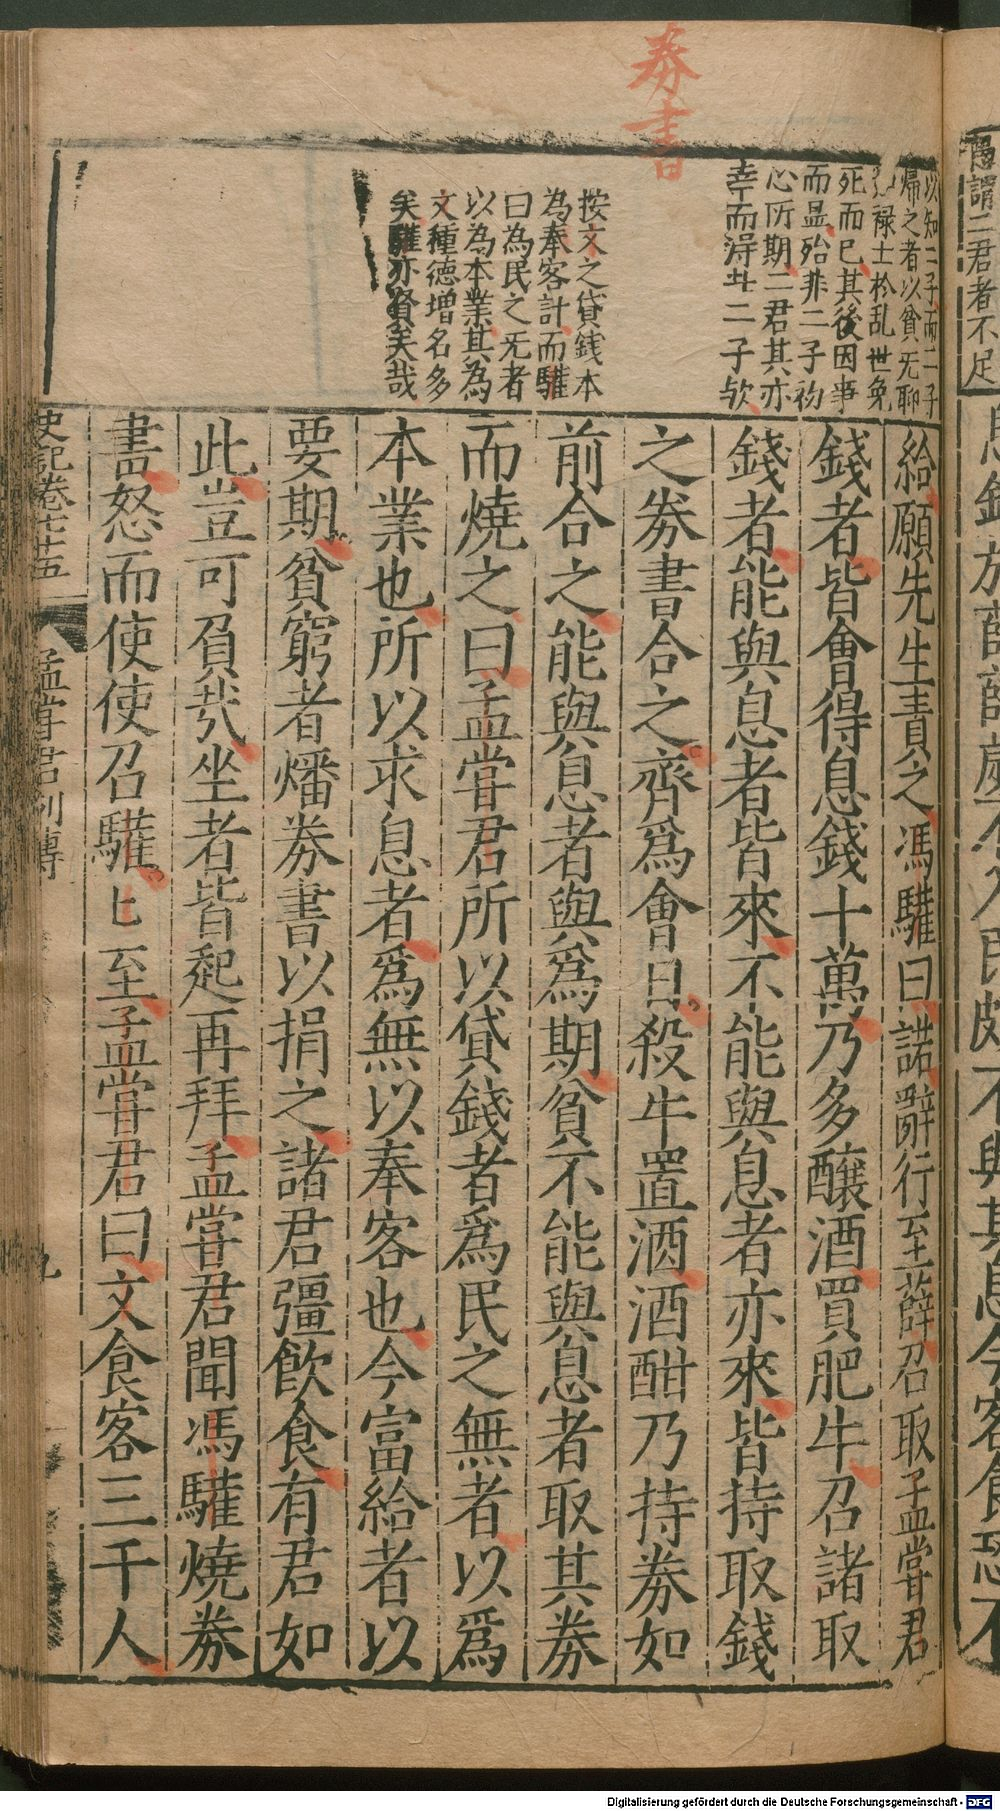 券書
以知二子而二子
歸之者以貧无聊
祿士於乱世免
死而已其後因事
而显殆非二子初
心所期二君其亦
幸而得斗二子欤
按文之貸錢本
為奉客計而驩
曰為民之无者
以為本業其為
文種德增名多
矣驩亦賢矣哉
給願先生責之馮驩曰諾辭行至薛召取孟嘗君
錢者皆會得息錢十萬乃多釀酒買肥牛召諸取
錢者能與息者皆來不能與息者亦來皆持取錢
之券書合之齊為會日殺牛置酒酒酣乃持券如
前合之能與息者與為期貧不能與息者取其券
而燒之曰孟嘗君所以貸錢者為民之無者以為
本業也所以求息者為無以奉客也今富給者以
要期貧窮者燔券書以捐之諸君彊飲食有君如
此豈可負哉坐者皆起再拜孟嘗君聞馮驩燒券
書怒而使使召驩匕至孟嘗君曰文食客三千人
史記卷七十五
孟嘗君列傳
九
愚謂二君者不足
Digitalisierung gefördert durch die Deutsche Forschungsgemeinschaft - DFG